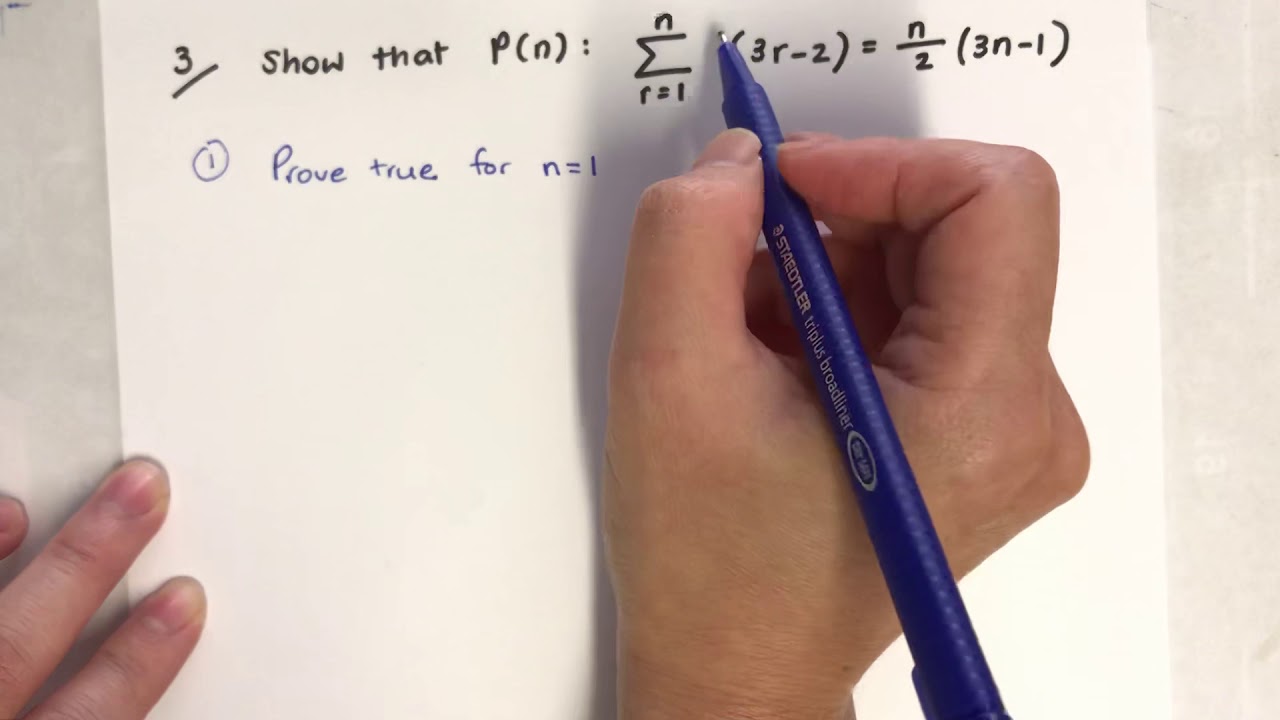 3/ Show that P(n): ∑ⁿᵣ₌₁ (3r-2) = n/2 (3n-1)
① Prove true for n=1
STAEDTLER triplus broadliner